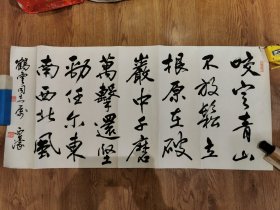 咬定青山
不放鬆立
根原在破
巖中千磨
萬擊還堅
勁任尔東
南西北風
鶴雲同志属